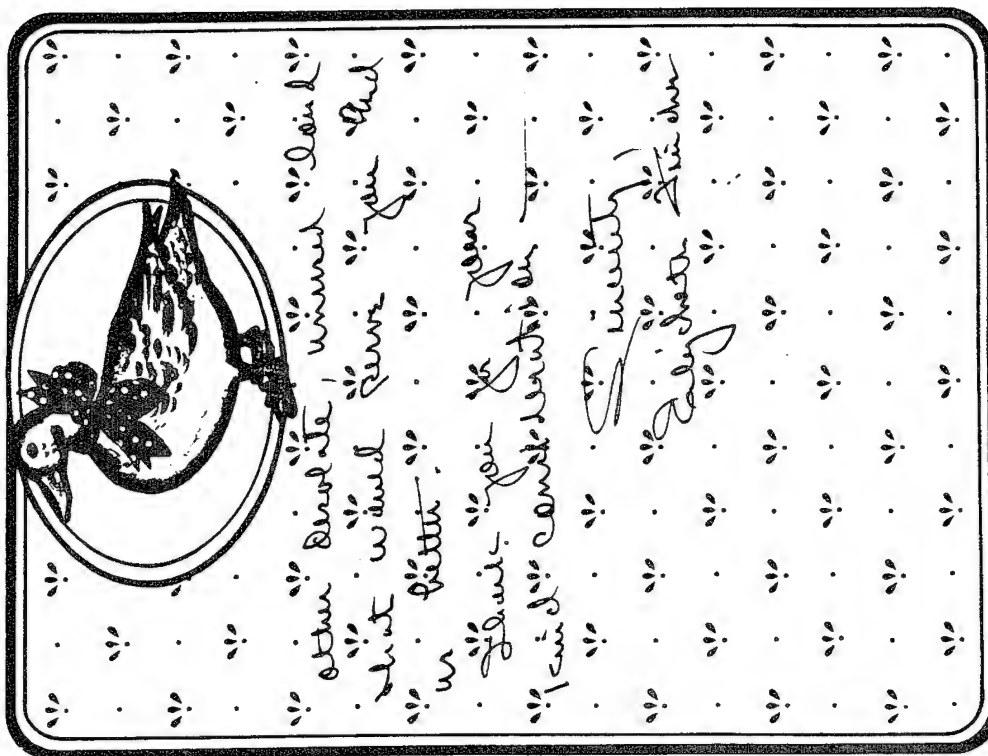 other desolate, unused land
that would serve you and
us better.
Thank you for your
kind consideration —
Sincerely,
Elizabeth